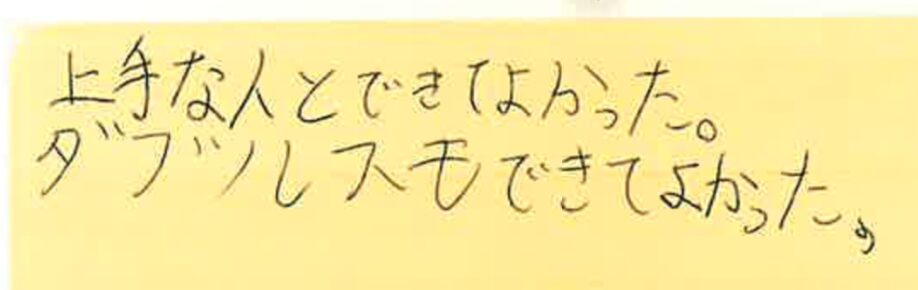 上手な人とできてよかった。
ダブルスもできてよかった。